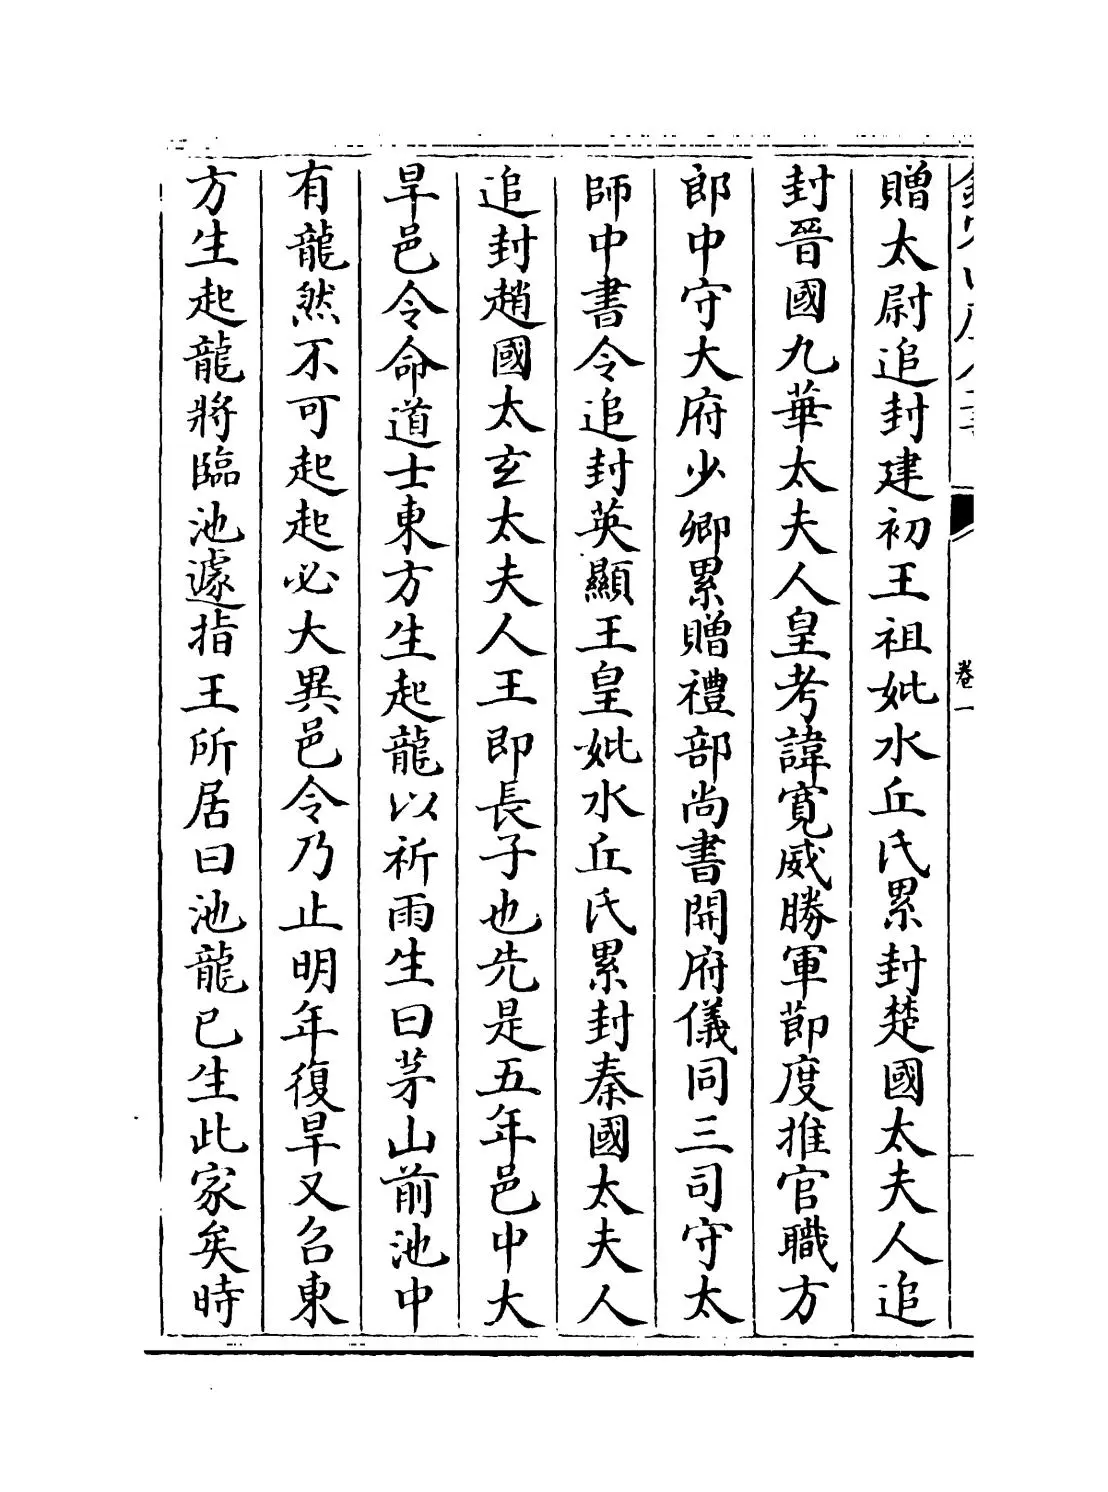 贈太尉追封建初王祖妣水丘氏累封楚國太夫人追
封晉國九華太夫人皇考諱寛威勝軍節度推官職方
郎中守大府少卿累贈禮部尚書開府儀同三司守太
師中書令追封英顯王皇妣水丘氏累封秦國太夫人
追封趙國太玄太夫人王即長子也先是五年邑中大
旱邑令命道士東方生起龍以祈雨生曰茅山前池中
有龍然不可起起必大異邑令乃止明年復旱又召東
方生起龍將臨池遽指王所居曰池龍已生此家矣時
卷一